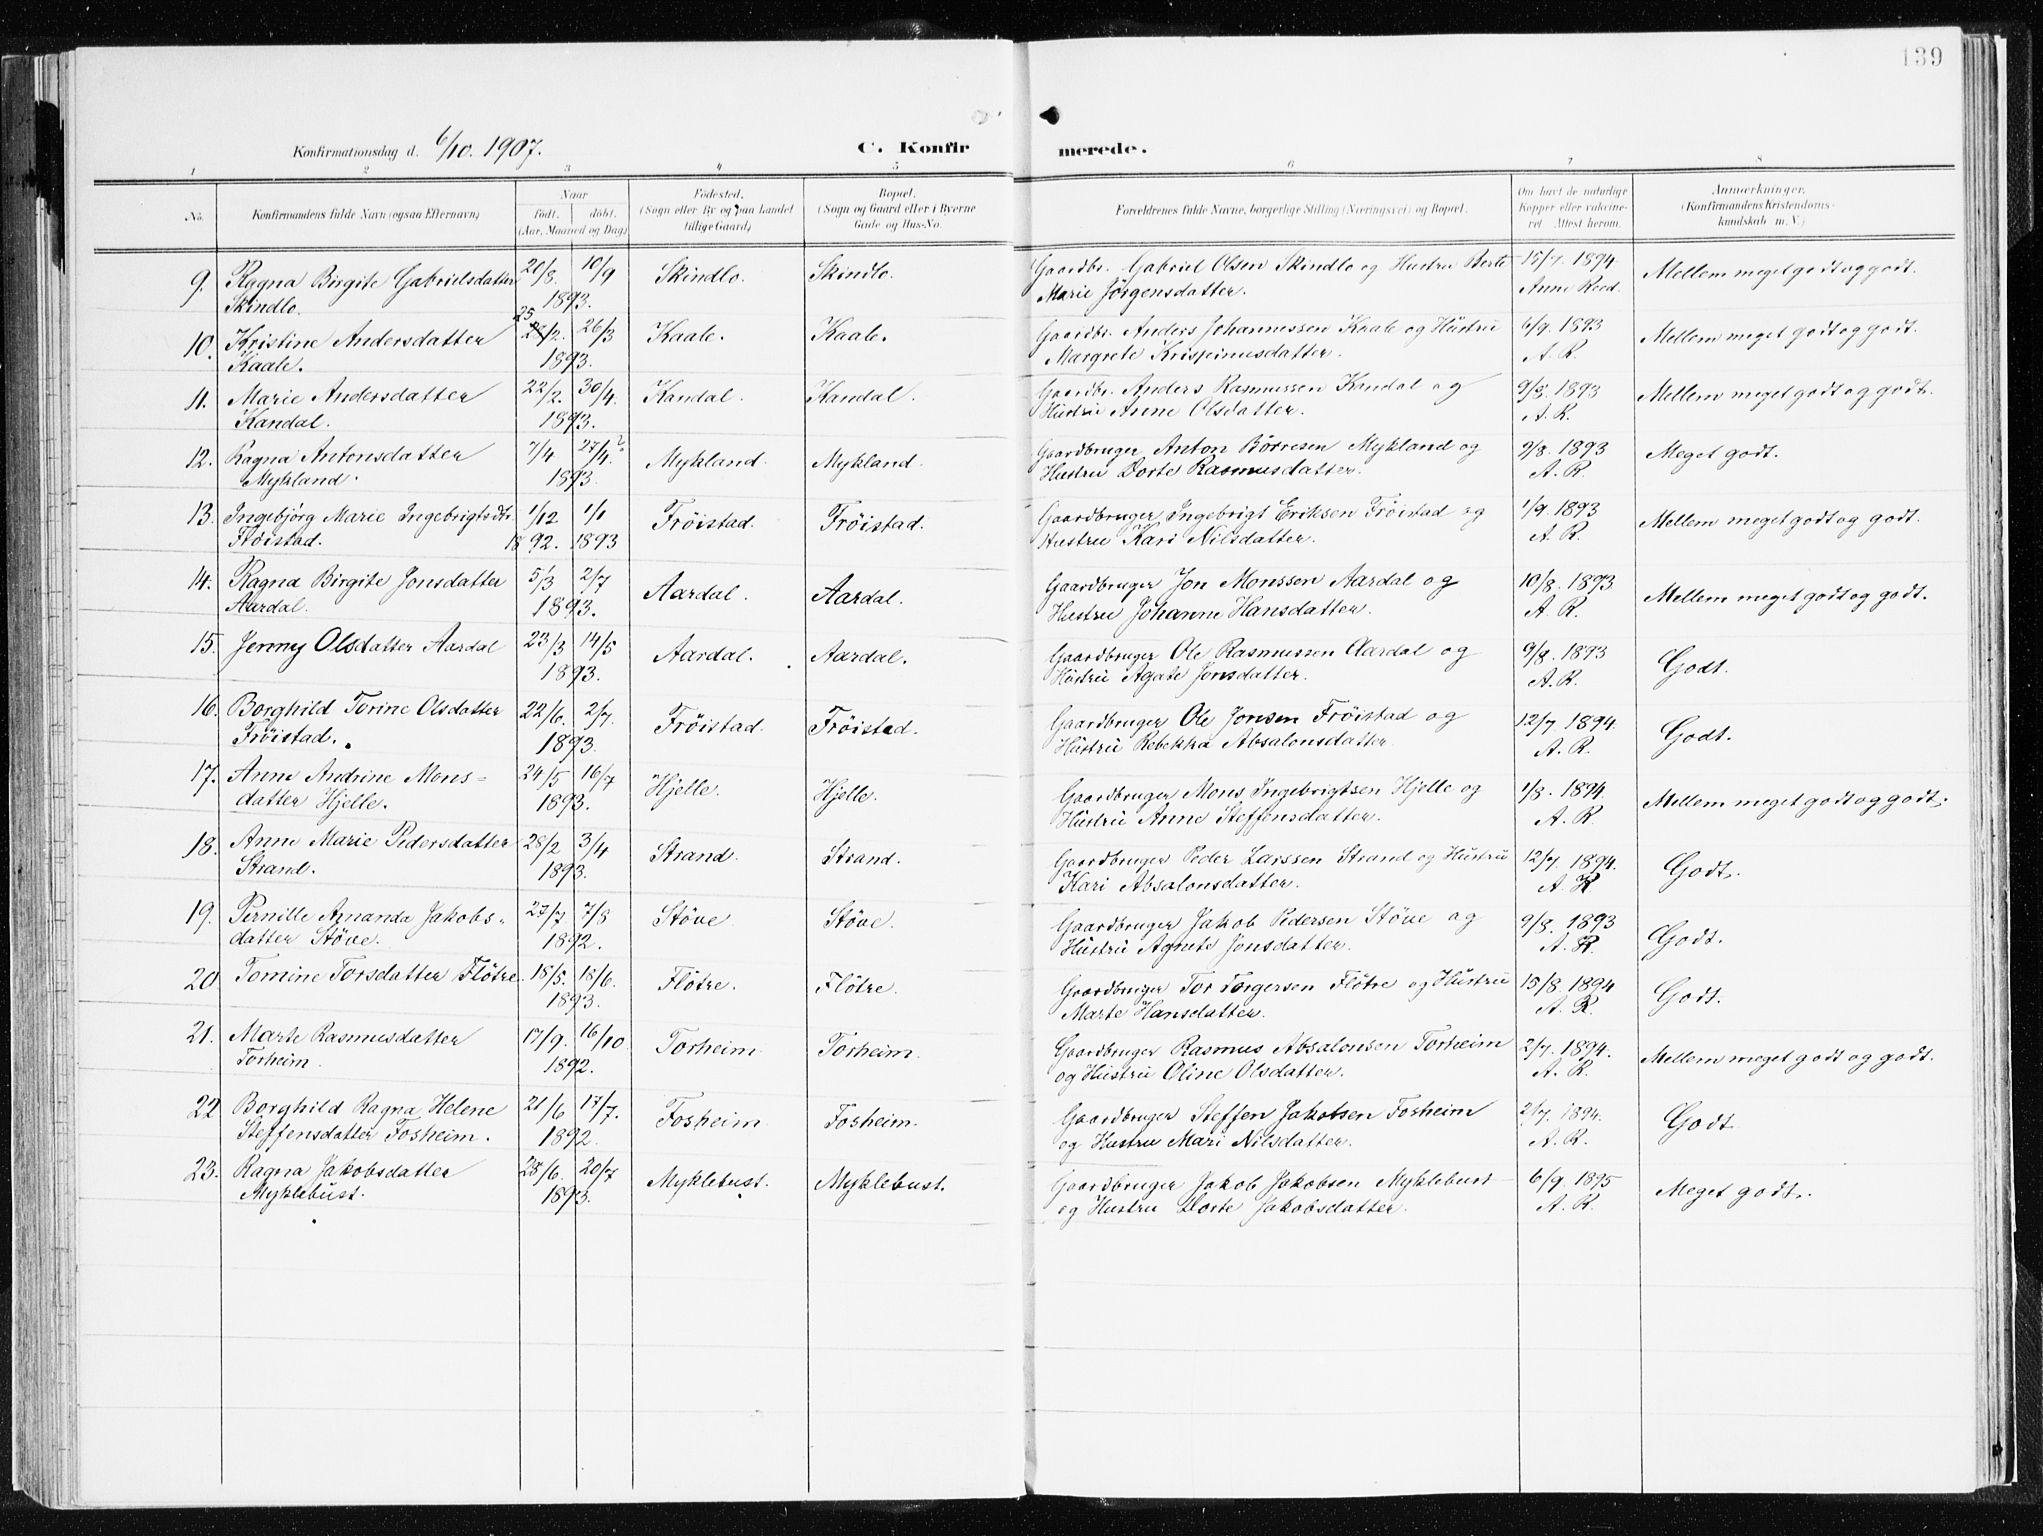 139
Konfirmationsdag d. 6/10. 1907.
C. Konfir merede.
1 2 3 4 5 6 7 8
No.
Konfirmandens fulde Navn (ogsaa Efternavn)
Naar
født. døbt.
(Aar, Maaned og Dag)
Fødested.
(Sogn eller By og paa Landet
tillige Gaard)
Bopæl.
(Sogn og Gaard eller i Byerne
Gade og Hus-No.
Forældrenes fulde Navne, borgerlige Stilling (Næringsvei) og Bopæl.
Om havt de naturlige
Kopper eller vakcine-
ret. Attest herom.
Anmærkninger.
(Konfirmandens Kristendoms-
kundskab m. V.)
9. Ragna Birgite Gabrielsdatter 20/8. 10/9 Skindlo. Skindlo. Gaardbr. Gabriel Olsen Skindlo og Hustru Berte 15/7. 1894. Mellem meget godt og godt.
Skindlo. 1893. Marie Jørgensdatter. Anne Reed.
10. Kristine Andersdatter 25/2. 26/3 Kaale. Kaale. Gaardbr. Anders Johannessen Kaale og Hustru 6/9. 1893 Mellem meget godt og godt.
Kaale. 1893. Margrete Krispinusdatter. A. R.
11. Marie Andersdatter 22/2. 30/4. Kandal. Kandal. Gaardbr. Anders Rasmussen Kandal og 9/8. 1893 Mellem meget godt og godt.
Kandal. 1893. Hustru Anne Olsdatter. A. R.
12. Ragna Antonsdatter 7/4 27/4.? Mykland. Mykland. Gaardbruger Anton Børresen Mykland og 9/8. 1893 Meget godt.
Mykland. 1893. Hustru Dorte Rasmusdatter. A. R.
13. Ingebjørg Marie Ingebrigtsdtr. 1/12 1/1 Frøistad. Frøistad. Gaardbruger Ingebrigt Eriksen Frøistad og 1/9. 1893 Mellem meget godt og godt.
Frøistad. 1892. 1893 Hustru Kari Nilsdatter. A. R.
14. Ragna Birgite Jonsdatter 5/3 2/7 Aardal. Aardal. Gaardbruger Jon Monssen Aardal og 10/8. 1893 Mellem meget godt og godt.
Aardal. 1893. Hustru Johanne Hansdatter. A. R.
15. Jenny Olsdatter Aardal 23/3 14/5 Aardal. Aardal. Gaardbruger Ole Rasmussen Aardal og 9/8. 1893 Godt.
1893. Hustru Agate Jonsdatter. A. R.
16. Borghild Torine Olsdatter 22/6. 2/7. Frøistad. Frøistad. Gaardbruger Ole Jonsen Frøistad og 12/7. 1894. Godt.
Frøistad. 1893. Hustru Rebekka Absalonsdatter A. R.
17. Anne Andrine Mons= 24/5 16/7 Hjelle. Hjelle. Gaardbruger Mons Ingebrigtsen Hjelle og 1/8. 1894. Mellem meget godt og godt.
datter Hjelle. 1893. Hustru Anne Steffensdatter. A. R.
18. Anne Marie Pedersdatter 28/2 3/4 Strand. Strand. Gaardbruger Peder Larssen Strand og Hustru 12/7. 1894. Godt.
Strand. 1893. Kari Absalonsdatter. A. R
19. Pernille Amanda Jakobs= 23/7 7/8 Støve Støve. Gaardbruger Jakob Pedersen Støve og 9/8. 1893 Godt.
datter Støve. 1892. Hustru Agnete Jonsdatter. A. R.
20. Tomine Torsdatter Fløtre. 18/5. 18/6. Fløtre. Fløtre. Gaardbruger Tor Torgersen Fløtre og Hustru 15/8. 1894 Godt.
1893. Marte Hansdatter. A. R.
21. Marte Rasmusdatter 17/9. 16/10. Torheim. Torheim. Gaardbruger Rasmus Absalonsen Torheim 2/7. 1894. Mellem meget godt og godt.
Torheim. 1892. og Hustru Oline Olsdatter. A. R.
22 Borghild Ragna Helene 21/6 17/7. Fosheim. Fosheim. Gaardbruger Steffen Jakobsen Fosheim 2/7. 1894. Godt
Steffensdatter Fosheim. 1892. og Hustru Mari Nilsdatter. A. R.
23. Ragna Jakobsdatter 28/6. 20/7 Myklebust. Myklebust. Gaardbruger Jakob Jakobsen Myklebust 6/9. 1895 Meget godt.
Myklebust. 1893. og Hustru Dorte Jakobsdatter. A. R.